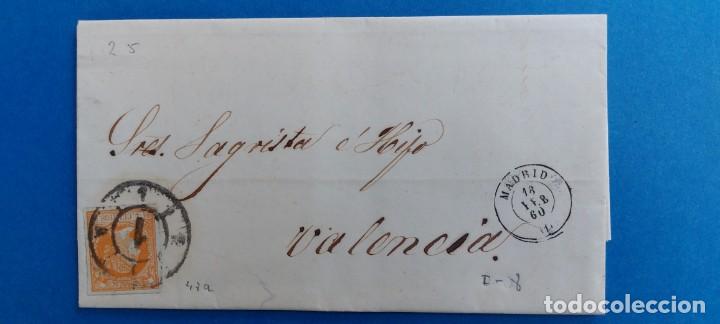 25
Sres. Sagrista é Hijo
MADRID
18
FEB
60
Valencia.
1
47a
todocoleccion.net